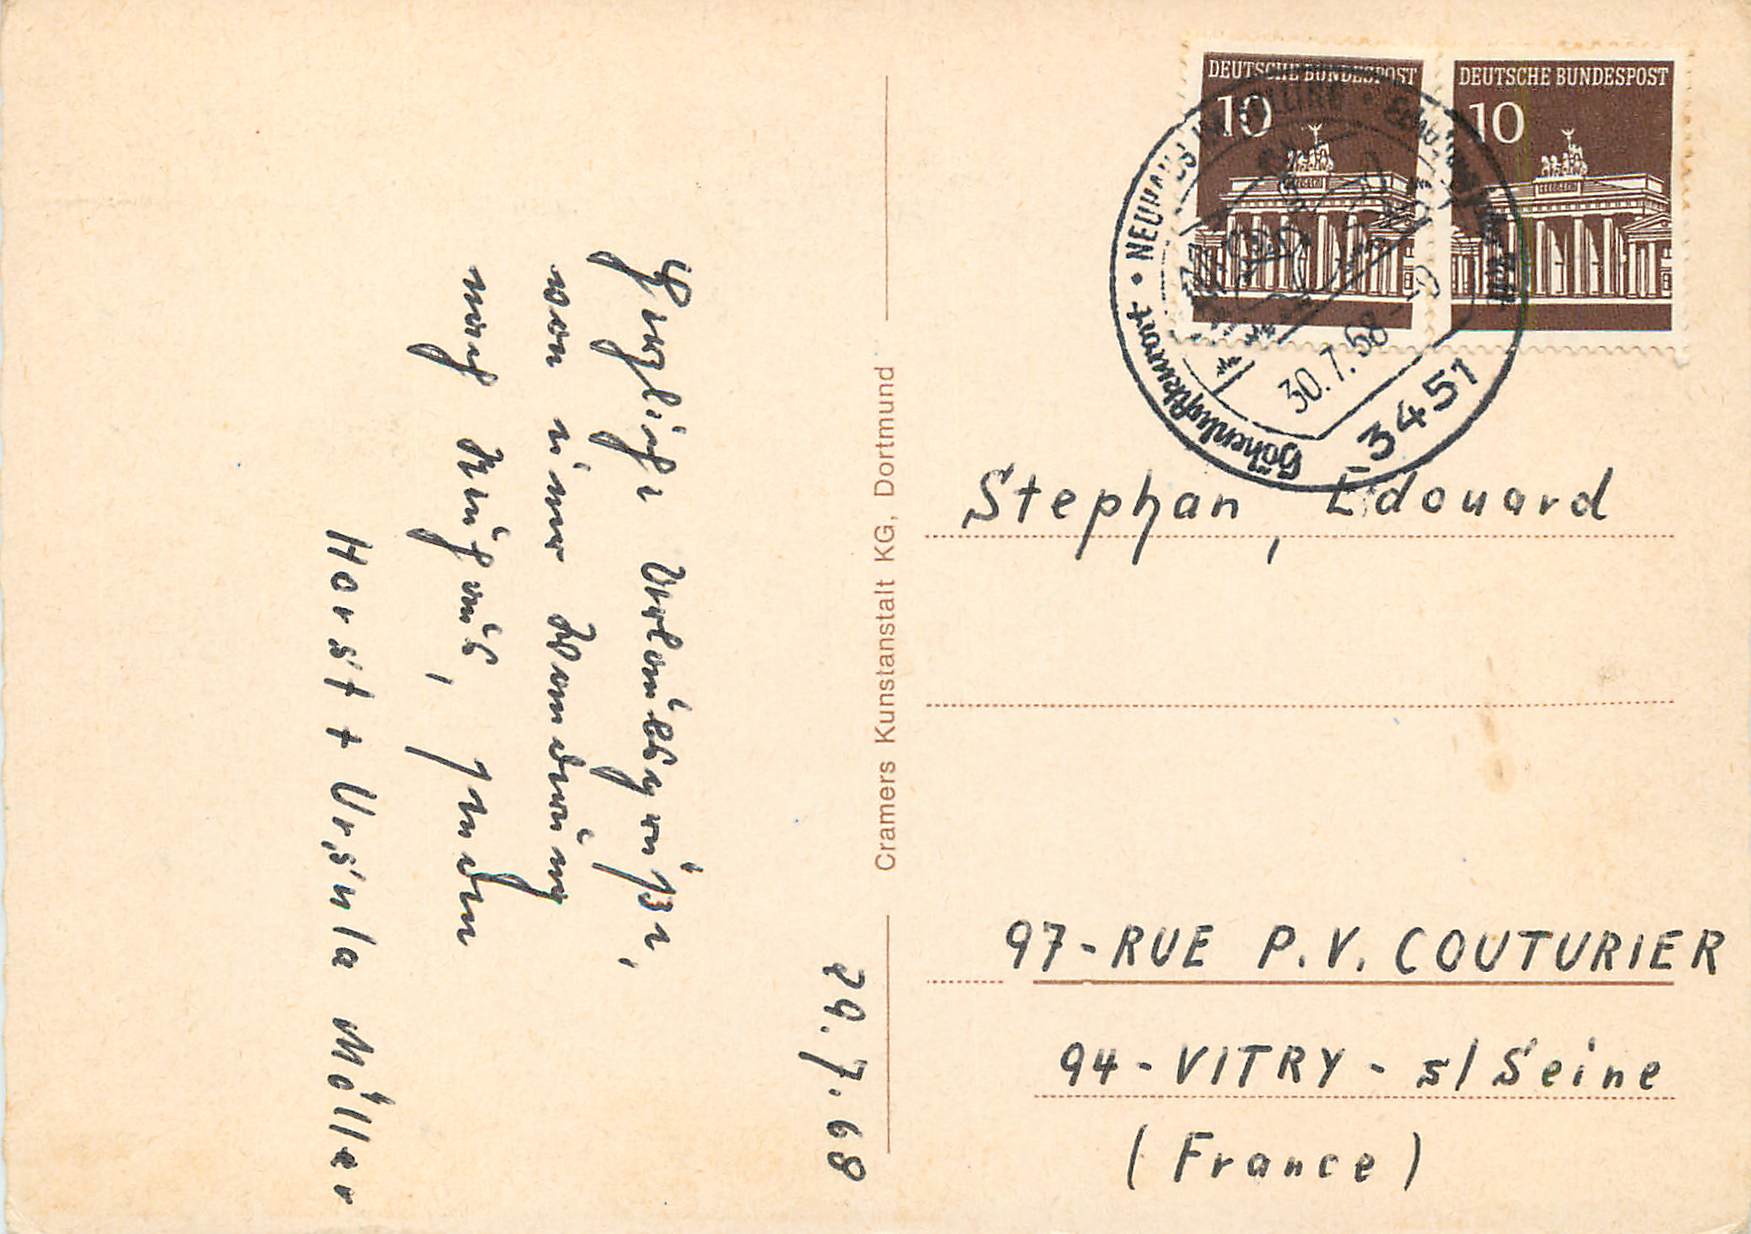 29.7.68
Herzliche Urlaubsgrüße,
von einer Wanderung
nach Neuhaus, senden
Horst + Ursula Möller
Cramers Kunstanstalt KG, Dortmund
DEUTSCHE BUNDESPOST
10
DEUTSCHE BUNDESPOST
10
NEUHAUS IM SOLLING
Höhenluftkurort
30.7.68
3451
Stephan, Edouard
97-RUE P.V. COUTURIER
94-VITRY - s/Seine
(France)